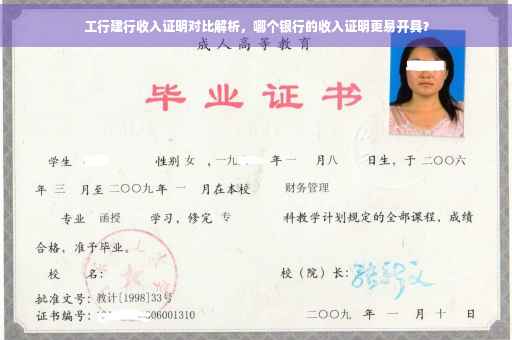 工行建行收入证明对比解析，哪个银行的收入证明更易开具？
成人高等教育
毕业证书
学生 性别 女 ，一九 年 一 月八 日生，于 二〇〇六
年 三 月至 二〇〇九 年 一 月在本校 财务管理
专业 函授 学习，修完 专 科教学计划规定的全部课程，成绩
合格，准予毕业。
校 名： 校（院）长：
批准文号：教计[1998]33号
证书编号： 06001310 二〇〇九 年 一 月 十 日